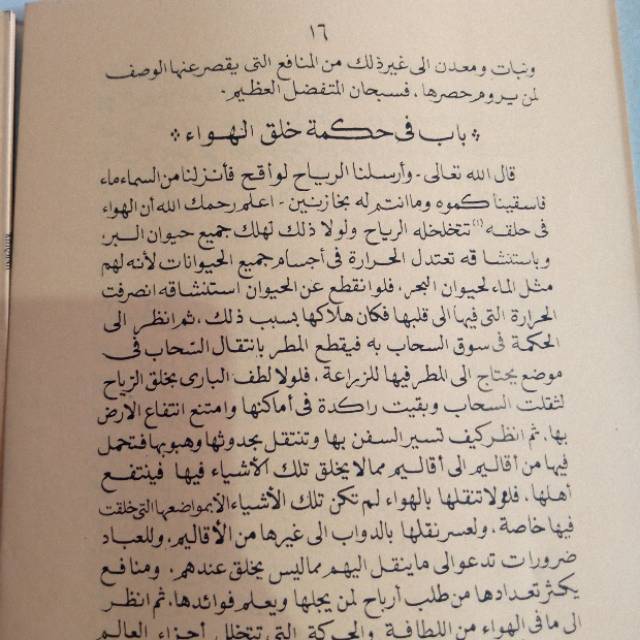 ١٦
ونبات ومعدن الى غير ذلك من المنافع التى يقصر عنها الوصف
لمن يروم حصرها ، فسبحان المتفضل العظيم .
* باب فى حكمة خلق الهواء *
قال الله تعالى - وأرسلنا الرياح لواقح فأنزلنا من السماء ماء
فاسقيناكموه وما انتم له بخازنين - اعلم رحمك الله أن الهواء
فى خلقه (١) تتخلخله الرياح ولولا ذلك لهلك جميع حيوان البر،
وباستنشاقه تعتدل الحرارة فى أجسام جميع الحيوانات لأنه لهم
مثل الماء لحيوان البحر ، فلو انقطع عن الحيوان استنشاقه انصرفت
الحرارة التى فيها الى قلبها فكان هلاكها بسبب ذلك ، ثم انظر الى
الحكمة فى سوق السحاب به فيقطع المطر بانتقال السحاب فى
موضع يحتاج الى المطر فيها للزراعة ، فلولا لطف البارى بخلق الرياح
لثقلت السحاب وبقيت راكدة فى أماكنها وامتنع انتفاع الأرض
بها ، ثم انظر كيف تسير السفن بها وتنتقل بحدوثها وهبوبها فتحمل
فيها من أقاليم الى أقاليم مما لا يخلق تلك الأشياء فيها فينتفع
أهلها ، فلولا تنقلها بالهواء لم تكن تلك الأشياء الا بمواضعها التى خلقت
فيها خاصة ، ولعسر نقلها بالدواب الى غيرها من الأقاليم ، وللعباد
ضرورات تدعو الى ما ينقل اليهم مما ليس يخلق عندهم . ومنافع
يكثر تعدادها من طلب أرباح لمن يجلها ويعلم فوائدها ، ثم انظر
الى ما فى الهواء من اللطافة والحركة التى تتخلل أجزاء العالم